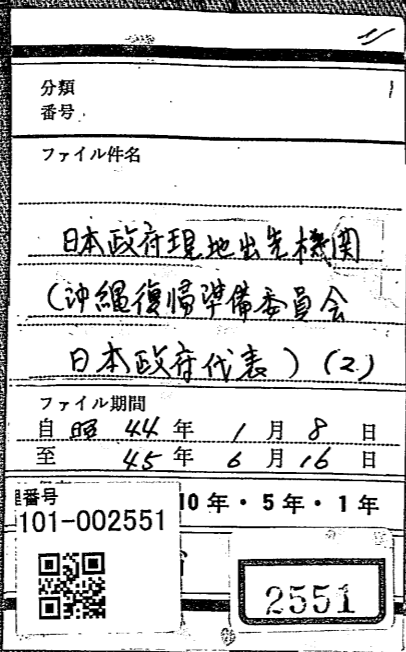 11
分類
番号
1
ファイル件名
日本政府現地出先機関
(沖縄復帰準備委員会
日本政府代表)(2)
ファイル期間
自 昭 44 年 1 月 8 日
至 45 年 6 月 16 日
番号
10年・5年・1年
101-002551
2551